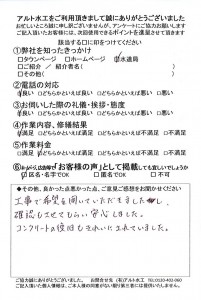 アルト水工をご利用頂きまして誠にありがとうございました
お忙しいところ誠に恐れございませんが、アンケートにご協力お願いします
ご記入頂いたお客様は、次回使用できるポイントを進呈させて頂きます
該当する□に印をつけて下さい
①弊社を知ったきっかけ
□タウンページ □ホームページ ☑水道局
□ご紹介 / 紹介者名( )
□その他( )
②電話の対応
☑良い □どちらかといえば良い □どちらかといえば悪い □悪い
③お伺いした際の礼儀・挨拶・態度
☑良い □どちらかといえば良い □どちらかといえば悪い □悪い
④作業内容、修繕結果
☑満足 □どちらかといえば満足 □どちらかといえば不満足 □不満足
⑤作業料金
☑満足 □どちらかといえば満足 □どちらかといえば不満足 □不満足
⑥ 「お客様の声」として掲載しても宜しいでしょうか
☑匿名・名字でOK □匿名でOK □不可
●その他、良かった点悪かった点、ご意見ご感想をお聞かせください
工事で希望を聞いていただきました し、
確認もさせてもらい安心しました。
コンクリートの復旧もきれいにされていました。
ご協力誠にありがとうございました。 お問合せ先 (有)アルト水工 TEL:0120-402-060